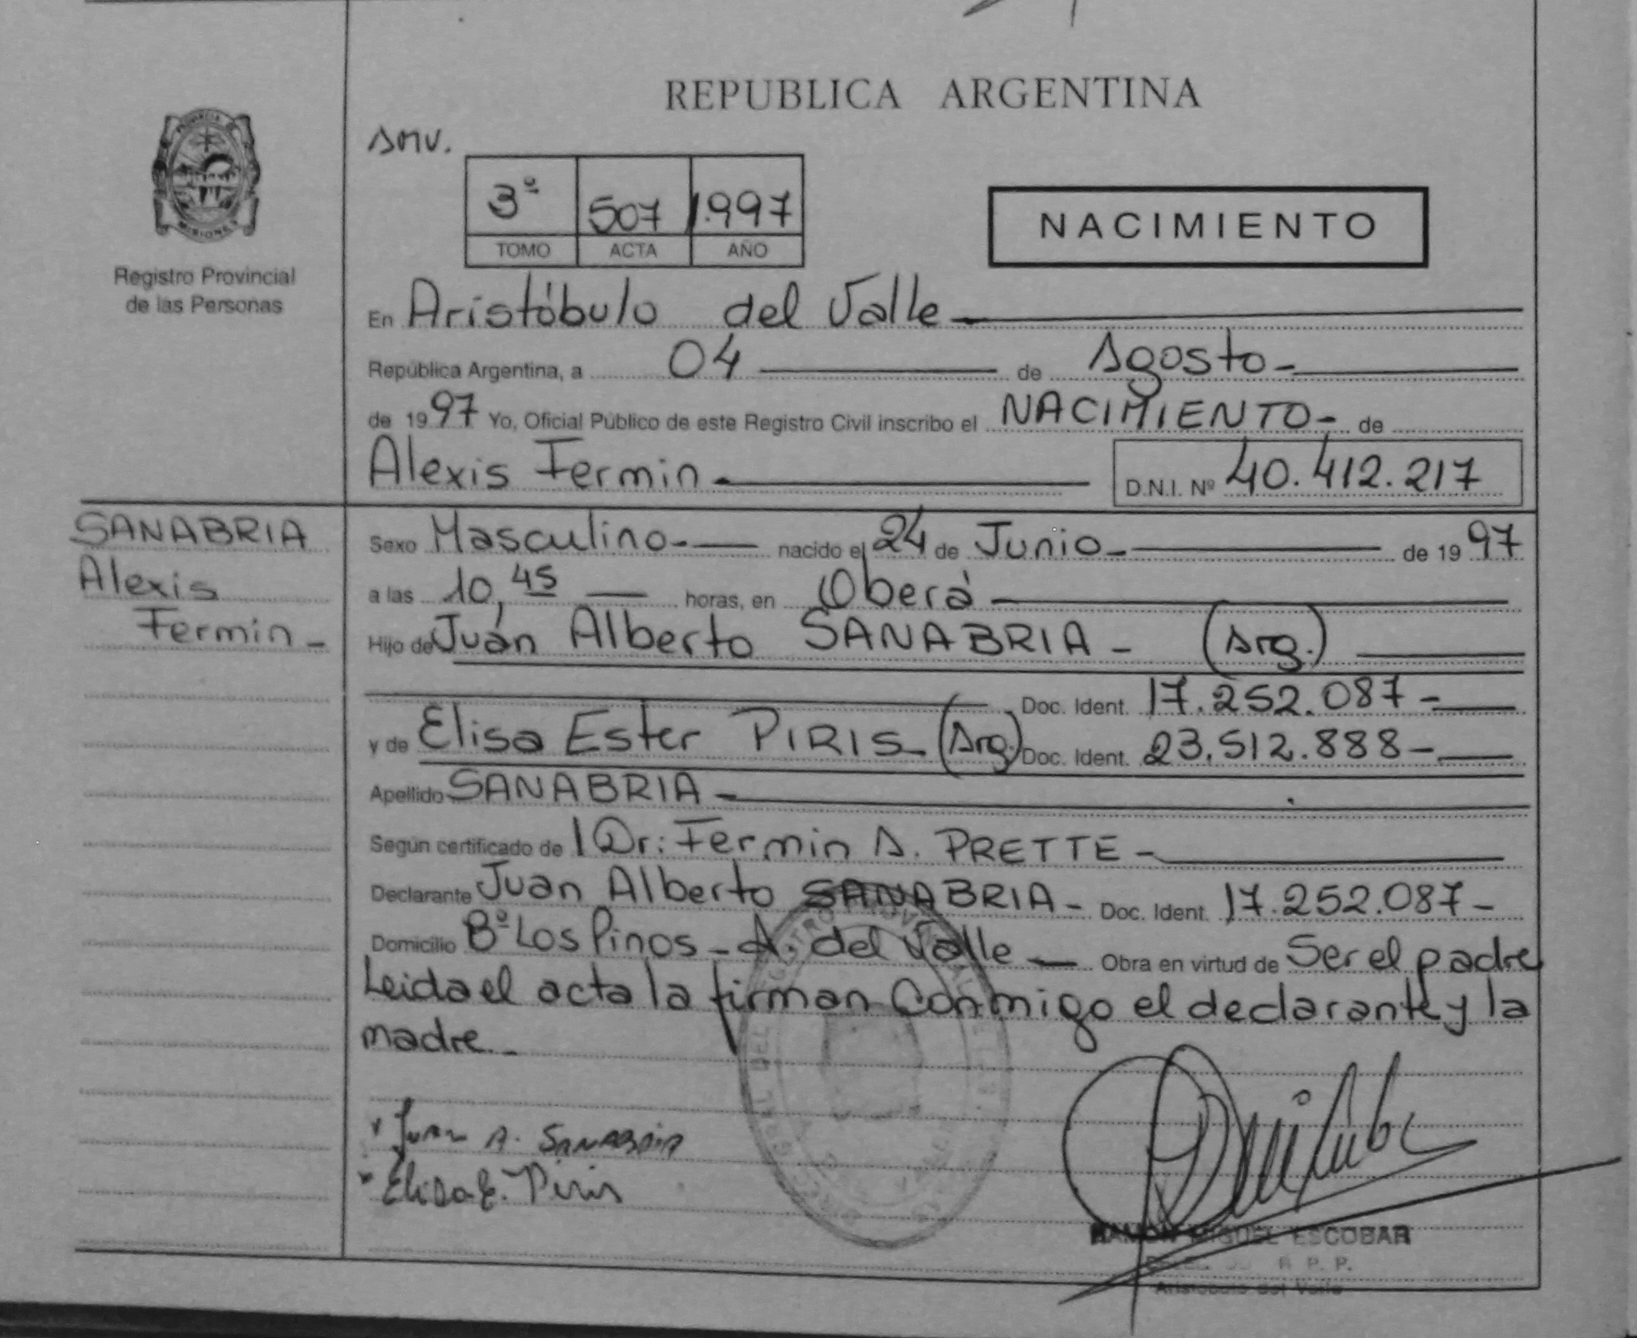 REPUBLICA ARGENTINA
PROVINCIA
MISIONES
Registro Provincial
de las Personas
smv.
3º 507 1.997
TOMO ACTA AÑO
NACIMIENTO
En Aristóbulo del Valle
República Argentina, a 04 de Agosto
de 1997 Yo, Oficial Público de este Registro Civil inscribo el NACIMIENTO de
Alexis Fermin D.N.I. Nº 40.412.217
SANABRIA
Alexis
Fermin
Sexo Masculino nacido el 24 de Junio de 1997
a las 10,45 horas, en Oberá
Hijo de Juán Alberto SANABRIA (Arg.)
Doc. Ident. 17.252.087
y de Elisa Ester PIRIS (Arg) Doc. Ident. 23.512.888
Apellido SANABRIA
Según certificado de l Dr: Fermin A. PRETTE
Declarante Juan Alberto SANABRIA Doc. Ident. 17.252.087
Domicilio Bº Los Pinos - A. del Valle Obra en virtud de Ser el padre
Leida el acta la firman Conmigo el declarante y la
madre.
Juan A. SANABRIA
Elisa E. Piris
RAMON MIGUEL ESCOBAR
R. P. P.
Aristobulo del Valle